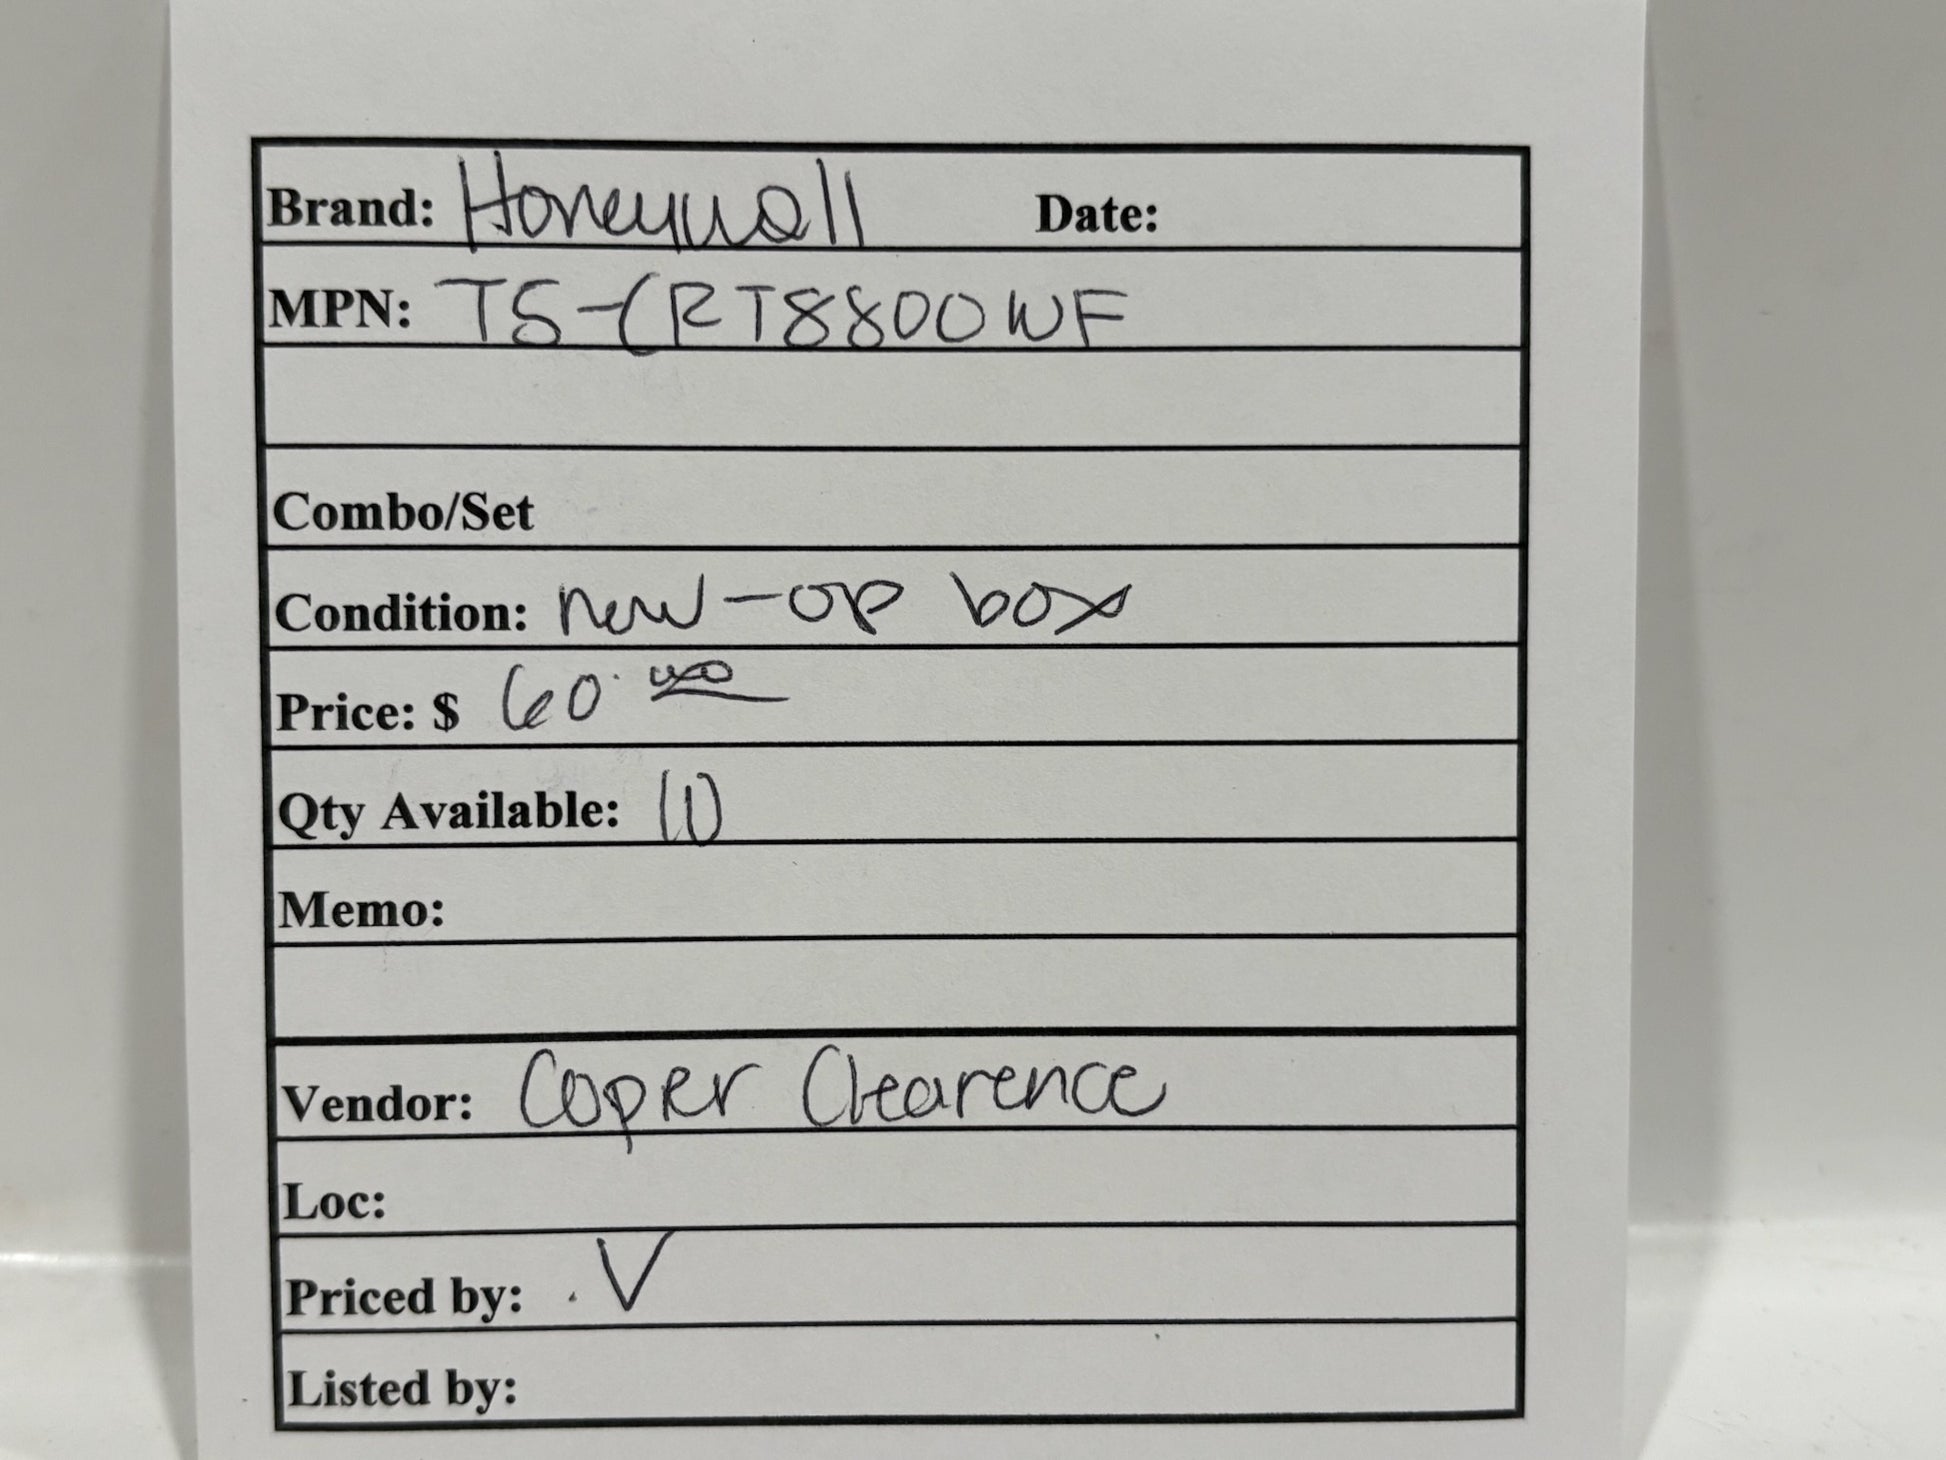 Brand: Honeywall Date:
MPN: TS-CRT8800WF
Combo/Set
Condition: new-op box
Price: $ 60.00
Qty Available: (1)
Memo:
Vendor: Coper Clearence
Loc:
Priced by: .V
Listed by: